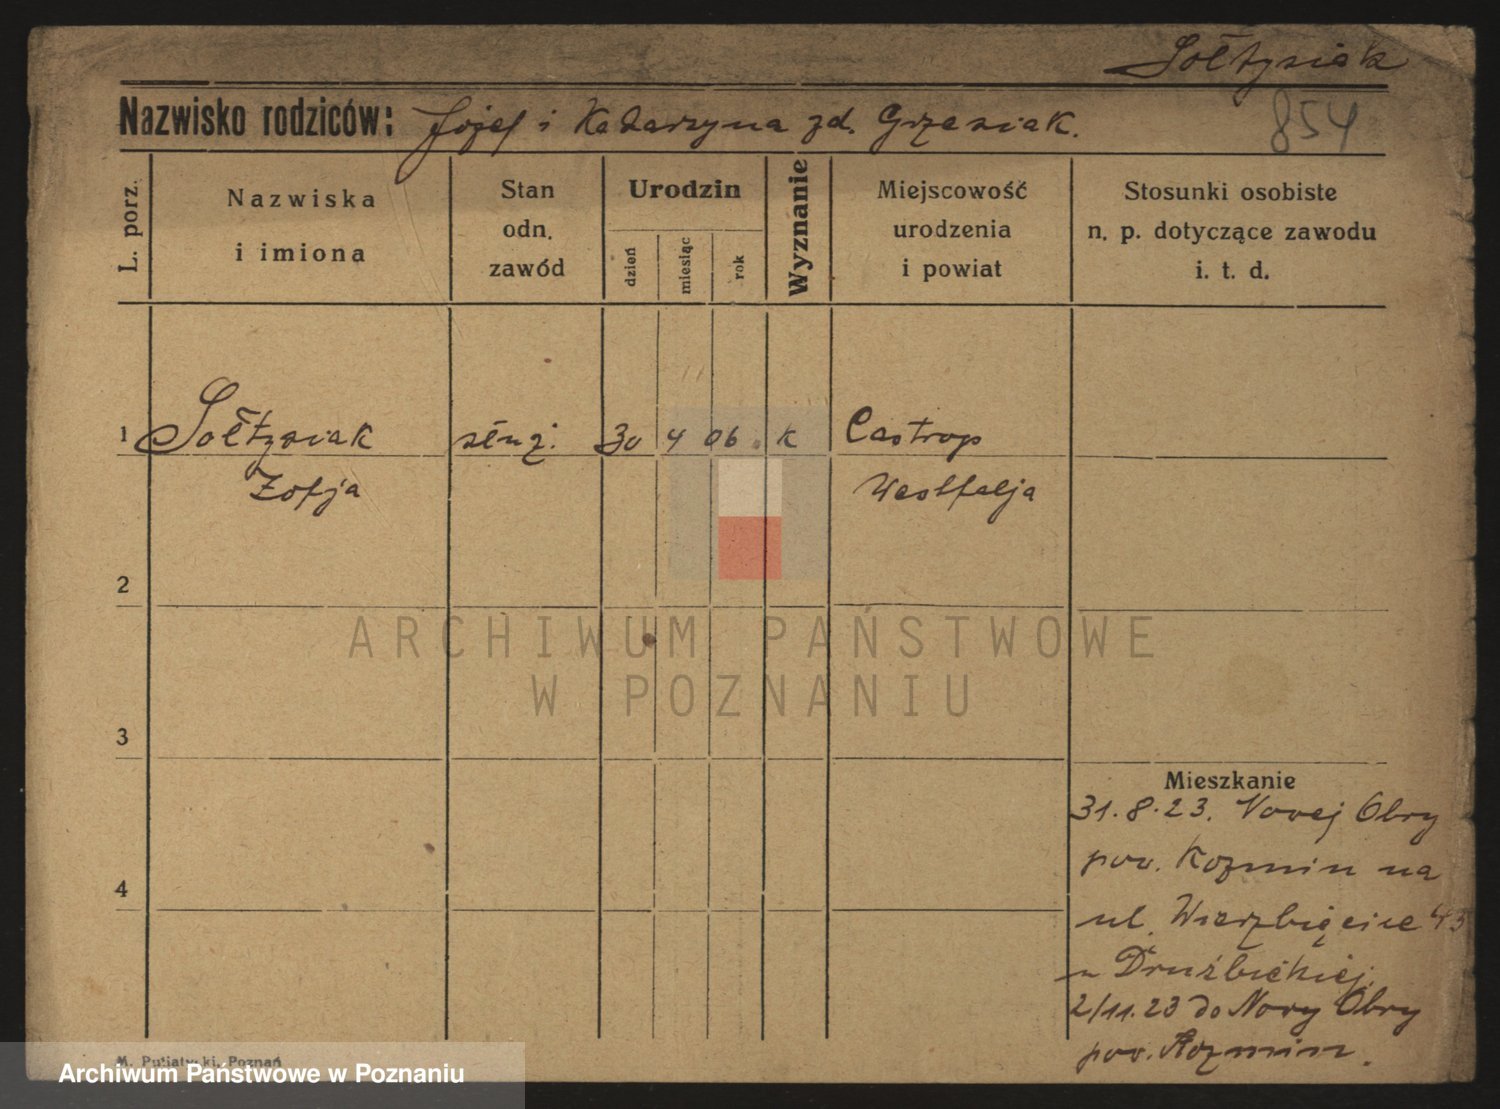 Sołtysiak
Nazwisko rodziców: Józef i Katarzyna zd. Grzesiak.
854
L. porz.
Nazwiska
i imiona
Stan
odn.
zawód
Urodzin
dzień
miesiąc
rok
Wyznanie
Miejscowość
urodzenia
i powiat
Stosunki osobiste
n. p. dotyczące zawodu
i. t. d.
1 Sołtysiak służ. 30 4 06. K Castrop
Zofja Westfalja
2
ARCHIWUM PAŃSTWOWE
W POZNANIU
3
Mieszkanie
31.8.23. Nowej Obry
pow. Kozmin na
4
ul. Wierzbięcice 43
u Drużbickiej.
2/11.23 do Nowy Obry
pow. Kozmin.
M. Putiatycki, Poznań
Archiwum Państwowe w Poznaniu